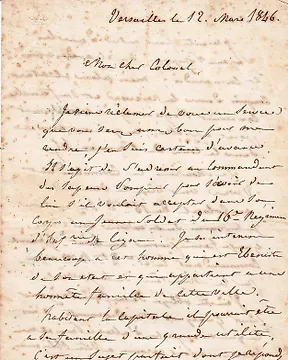 Versailles le 12. Mars 1846.
Mon cher Colonel
Je viens réclamer de vous un service
que vous serez assez bon pour me
rendre j'en suis certain d'avance.
Il s'agit de s'adresser au Commandant
des Sapeurs Pompiers pour savoir de
lui s'il voudroit accepter dans son
Corps un jeune Soldat du 16e Régiment
d'Infrie de ligne. Je m'intéresse
beaucoup à cet homme qui est Ebéniste
de son état et qui appartient à une
honnête famille de cette ville.
habitant la Capitale il pourrait être
à sa famille d'une grande utilité,
C'est un Sujet parfait dont je répond